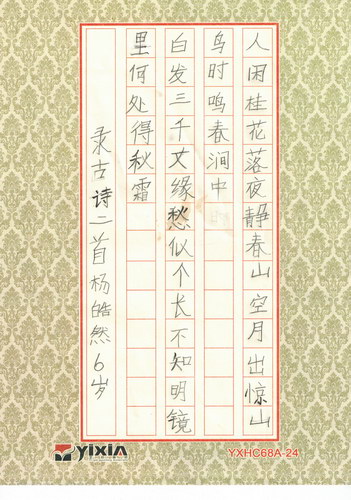 人闲桂花落夜静春山空月出惊山
鸟时鸣春涧中
白发三千丈缘愁似个长不知明镜
里何处得秋霜
录古诗二首杨皓然6岁
YIXIN
YXHC68A-24